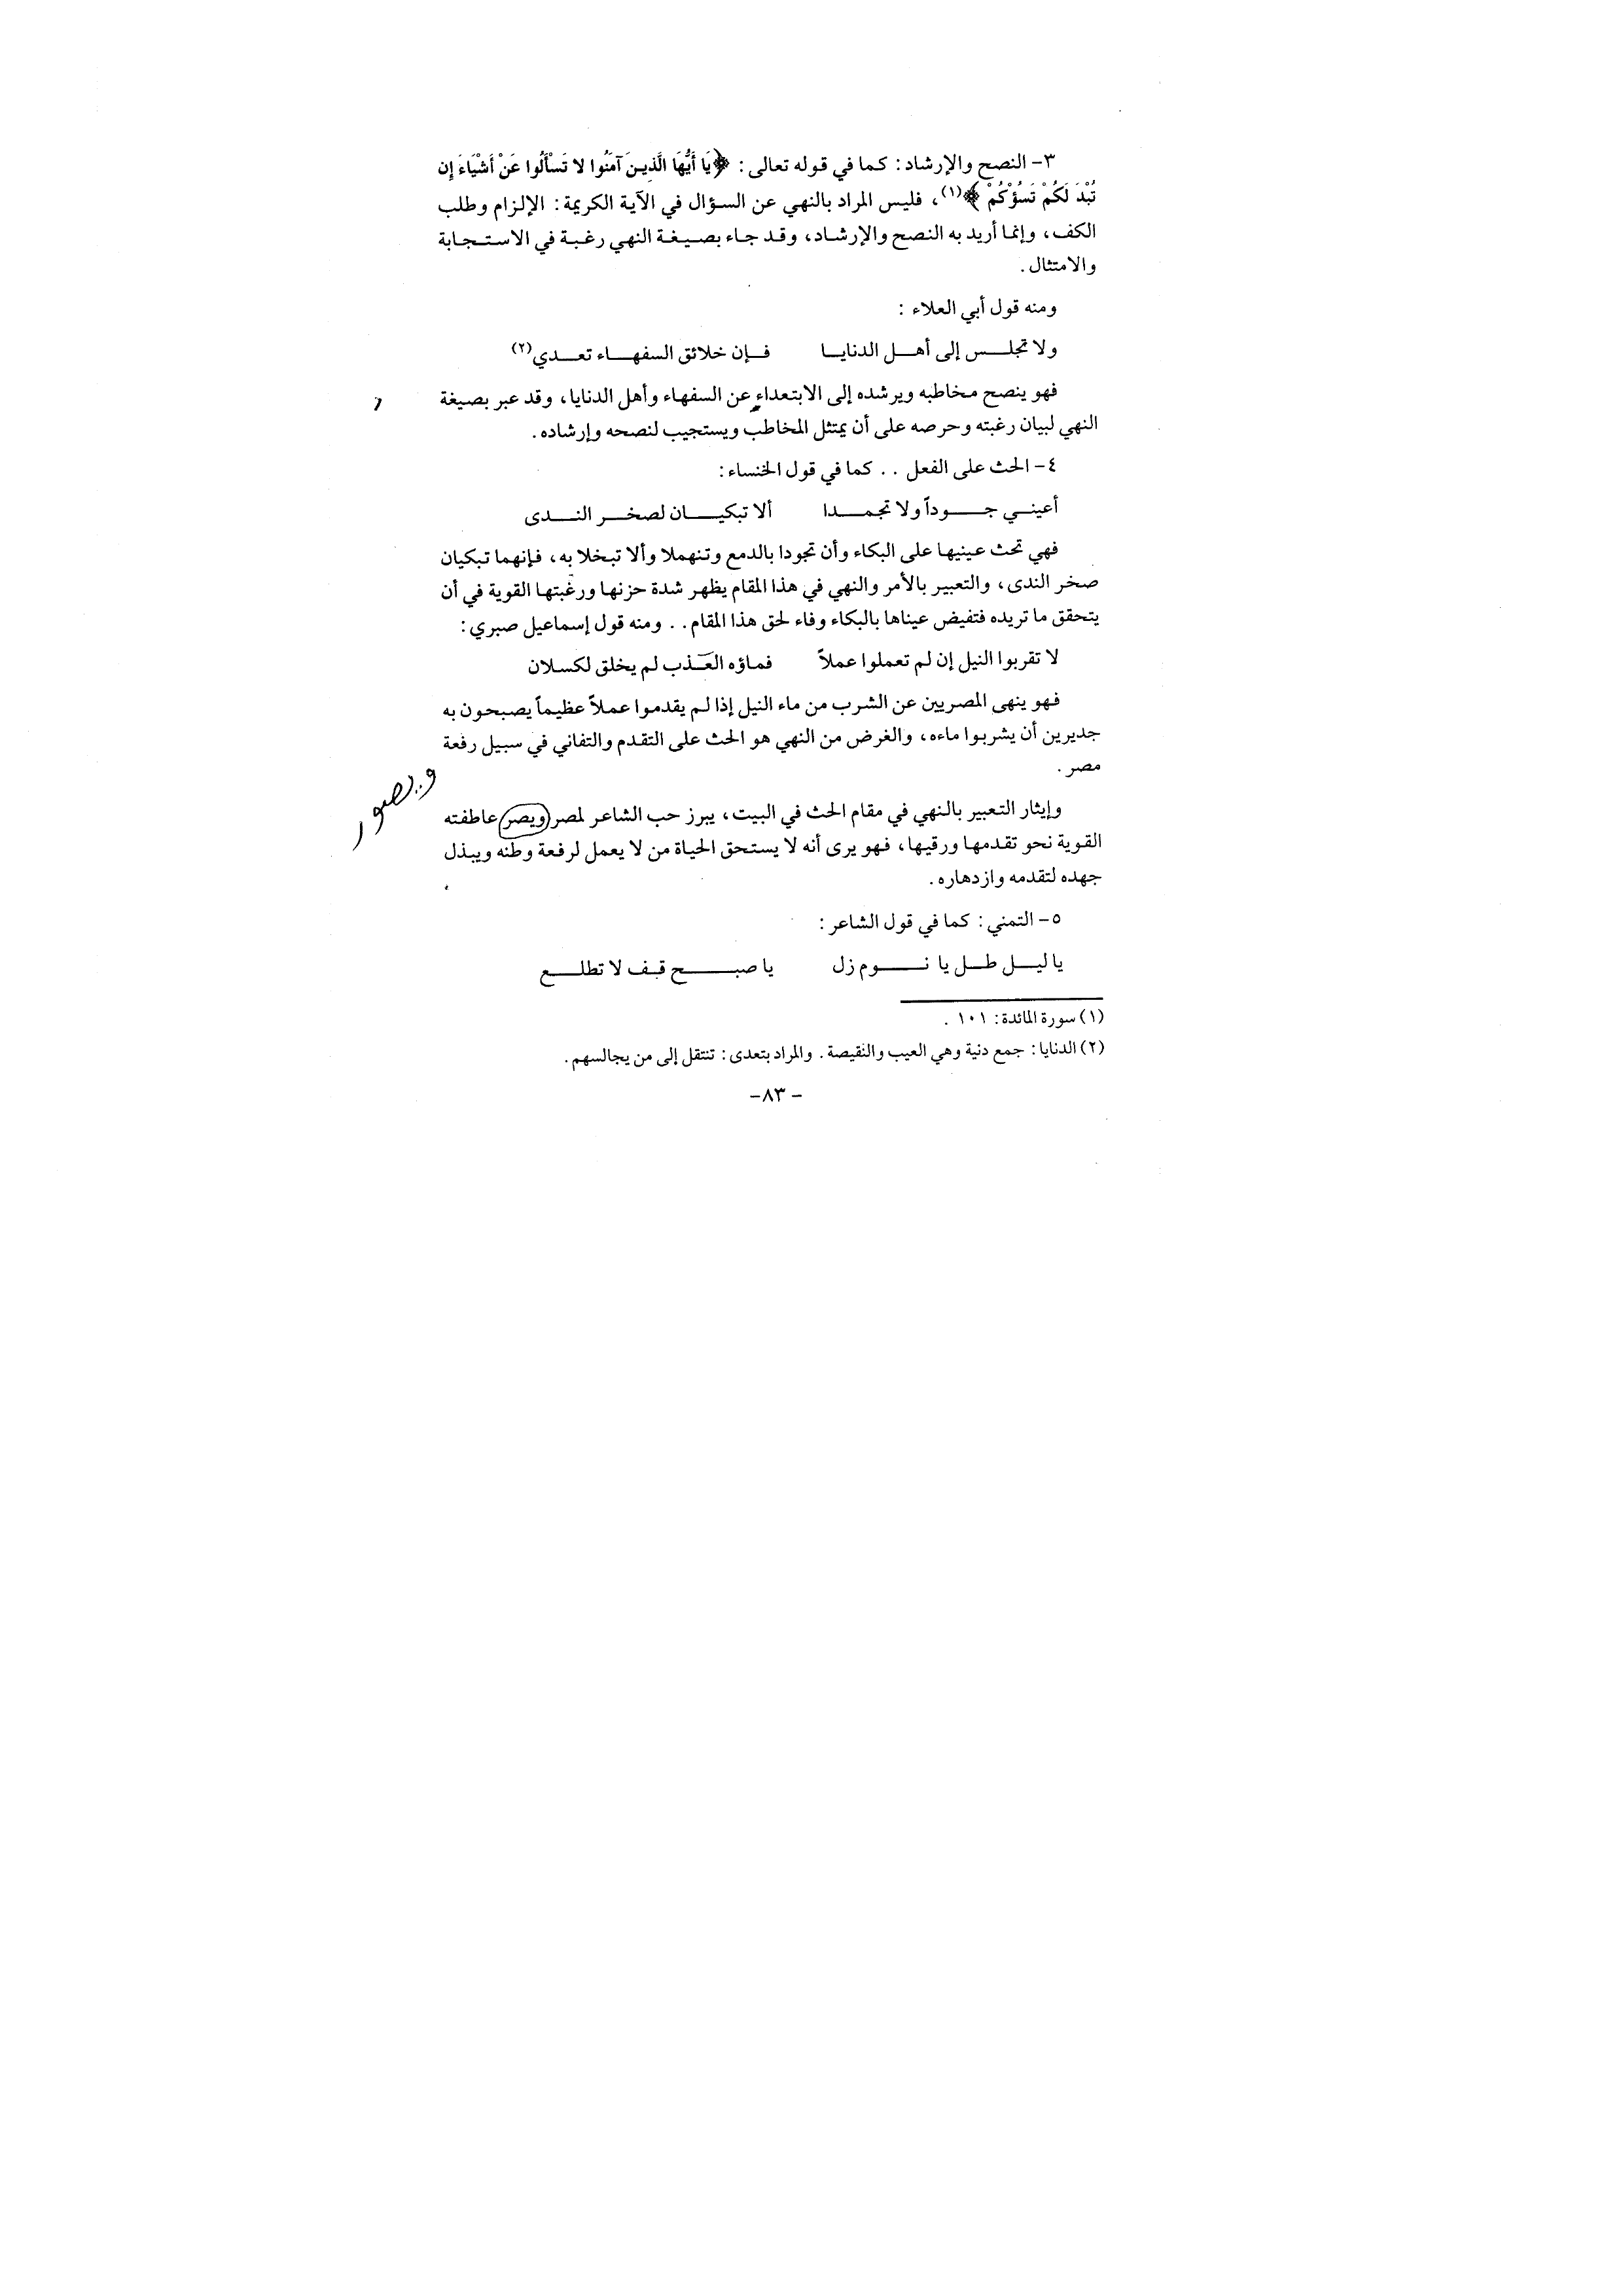 ٣- النصح والإرشاد: كما في قوله تعالى: ﴿يَا أَيُّهَا الَّذِينَ آمَنُوا لا تَسْأَلُوا عَنْ أَشْيَاءَ إِن
تُبْدَ لَكُمْ تَسُؤْكُمْ﴾(١)، فليس المراد بالنهي عن السؤال في الآية الكريمة: الإلزام وطلب
الكف، وإنما أريد به النصح والإرشاد، وقد جاء بصيغة النهي رغبة في الاستجابة
والامتثال.
ومنه قول أبي العلاء:
ولا تجلس إلى أهل الدنايا فإن خلائق السفهاء تعدي(٢)
فهو ينصح مخاطبه ويرشده إلى الابتعداء عن السفهاء وأهل الدنايا، وقد عبر بصيغة
النهي لبيان رغبته وحرصه على أن يمتثل المخاطب ويستجيب لنصحه وإرشاده.
٤- الحث على الفعل .. كما في قول الخنساء:
أعيني جوداً ولا تجمدا ألا تبكيان لصخر الندى
فهي تحث عينيها على البكاء وأن تجودا بالدمع وتنهملا وألا تبخلا به، فإنهما تبكيان
صخر الندى، والتعبير بالأمر والنهي في هذا المقام يظهر شدة حزنها ورغبتها القوية في أن
يتحقق ما تريده فتفيض عيناها بالبكاء وفاء لحق هذا المقام.. ومنه قول إسماعيل صبري:
لا تقربوا النيل إن لم تعملوا عملاً فماؤه العذب لم يخلق لكسلان
فهو ينهى المصريين عن الشرب من ماء النيل إذا لم يقدموا عملاً عظيماً يصبحون به
جديرين أن يشربوا ماءه، والغرض من النهي هو الحث على التقدم والتفاني في سبيل رفعة
مصر.
ويصور
وإيثار التعبير بالنهي في مقام الحث في البيت، يبرز حب الشاعر لمصر ويصر عاطفته
القوية نحو تقدمها ورقيها، فهو يرى أنه لا يستحق الحياة من لا يعمل لرفعة وطنه ويبذل
جهده لتقدمه وازدهاره.
٥- التمني: كما في قول الشاعر:
يا ليل طل يا نوم زل يا صبح قف لا تطلع
(١) سورة المائدة: ١٠١.
(٢) الدنايا: جمع دنية وهي العيب والنقيصة. والمراد بتعدى: تنتقل إلى من يجالسهم.
-٨٣-